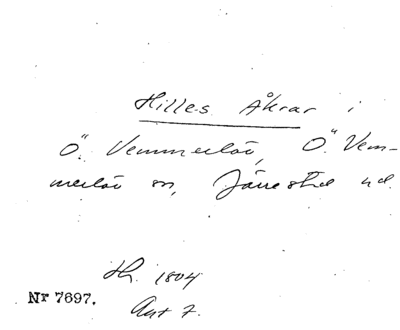 Hilles Åkrar i
Ö. Vemmerlöv, Ö. Vem-
merlöv sn, Järrestad hd.
Hs. 1804
Nr 7697.
Akt 7.